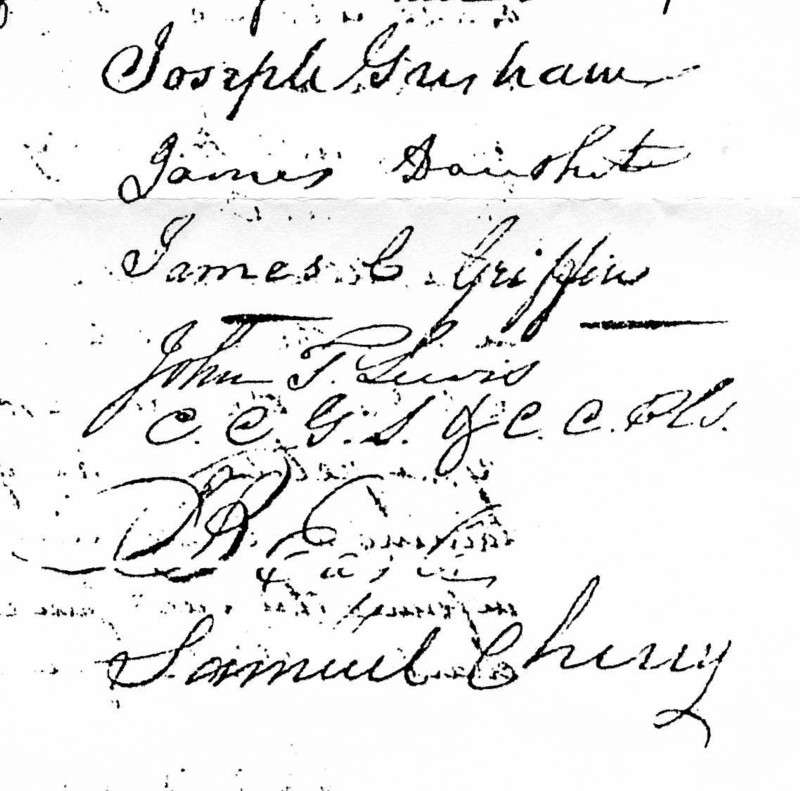 Joseph Grisham
James Douthit
James C Griffin
John T. Lewis
C. C. G. S. & C. C. Pls.
Samuel Cherry